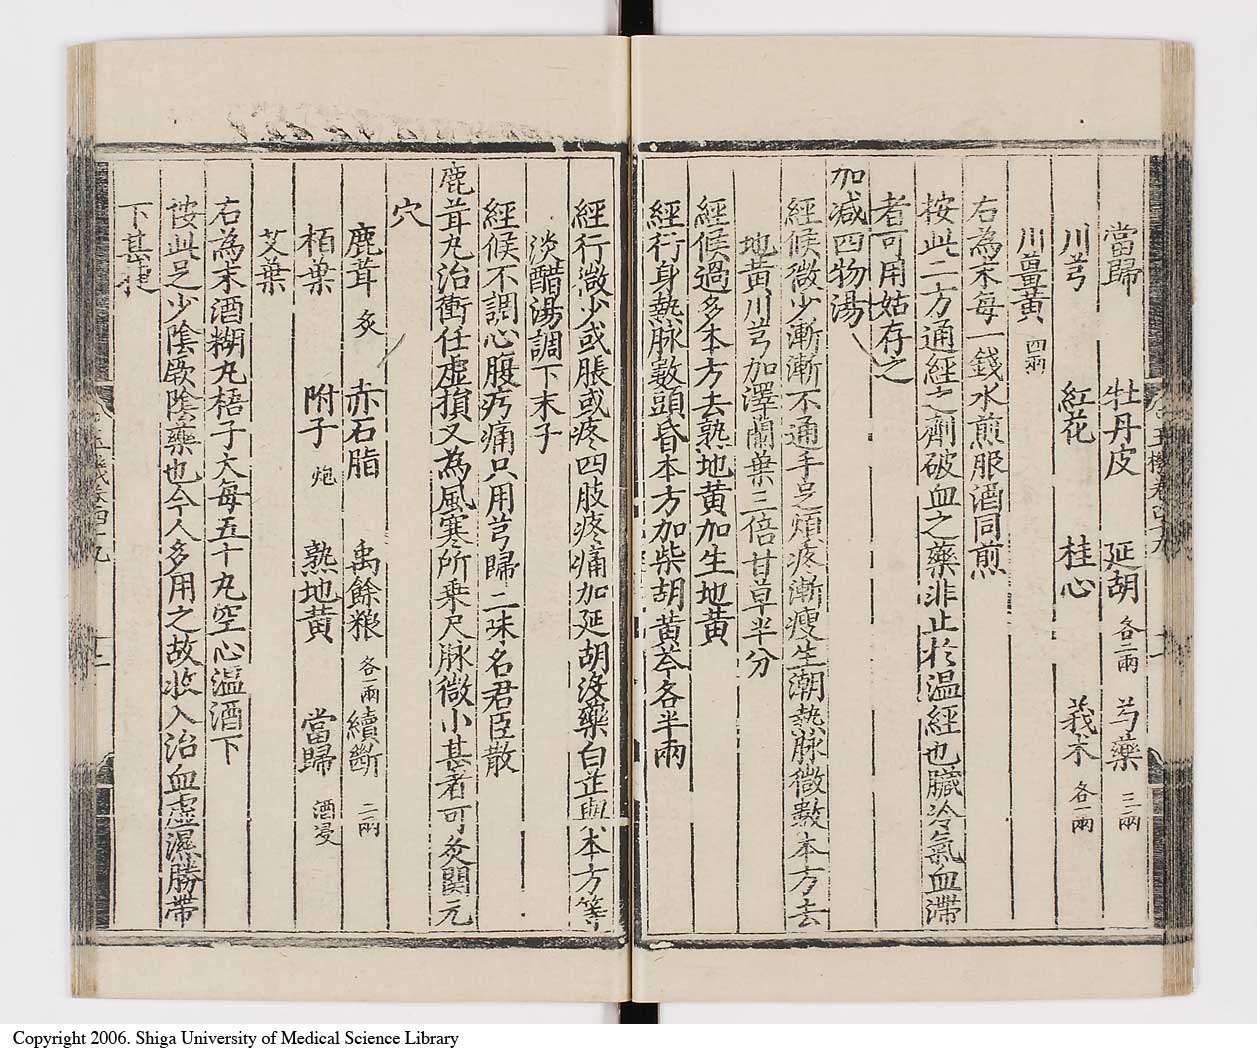 當歸 牡丹皮 延胡 各二兩 芍藥 三兩
川芎 紅花 桂心 莪朮 各一兩
川薑黃 四兩
右為末每一錢水煎服酒同煎
按此二方通經之劑破血之藥非止於温經也臟冷氣血滯
者可用姑存之
加减四物湯
經候微少漸漸不通手足煩疼漸瘦生潮熱脉微數本方去
地黄川芎加澤蘭葉三倍甘草半分
經候過多本方去熟地黄加生地黄
經行身熱脉數頭昏本方加柴胡黄芩各半兩
經行微少或脹或疼四肢疼痛加延胡没藥白芷與本方等
淡醋湯調下末子
經候不調心腹㽲痛只用芎歸二味名君臣散
鹿茸丸治衝任虚損又為風寒所乗尺脉微小甚者可灸關元
穴
鹿茸 炙 赤石脂 禹餘粮 各一兩 續斷 二兩
栢葉 附子 炮 熟地黄 當歸 酒浸
艾葉
右為末酒糊丸梧子大每五十丸空心温酒下
按此足少陰厥陰藥也今人多用之故收入治血虚濕勝帶
下甚捷